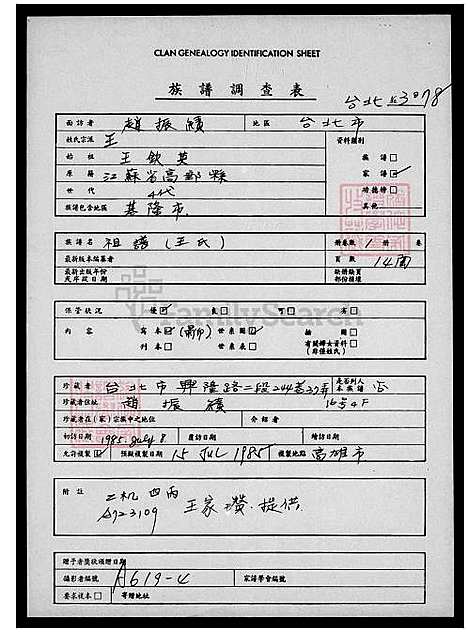 CLAN GENEALOGY IDENTIFICATION SHEET
族譜調查表
台北 五3078
面訪者 趙振績 地區 台北市
姓氏宗派 王 資料類別
始祖 王欽英 族譜□
原籍 江蘇省高郵縣 家譜☑
世代 4代 功德榜□
族譜包含地區 基隆市. 其他
族譜名 祖譜(王氏) 冊卷數 1 冊 卷
最新版本編纂者 頁數 14面
最新出版年份
或序跋日期
缺冊缺頁
部份損壞
保管狀況 優☑ 良□ 可□ 劣□
內容 寫本☑ 世系圖☑ 插圖□
刊本□ 世系表□ 有關婦女資料□
FamilySearch
珍藏者 台北市興隆路二段244巷37弄 是否列入本族譜 否
珍藏者住址 趙振績 16号4F
珍藏者在(家)宗族中之地位 介紹者
初訪日期 1985.July 8 覆訪日期 續訪日期
允許複製☑ 預擬複製日期 15 JUL 1985 複製地點 高雄市
附註 二机四丙
A723109 王家瓚.提供.
贈予者獎狀頒贈日期
攝影者編號 A619-4 家譜學會編號
要求複本□ 寄贈地址